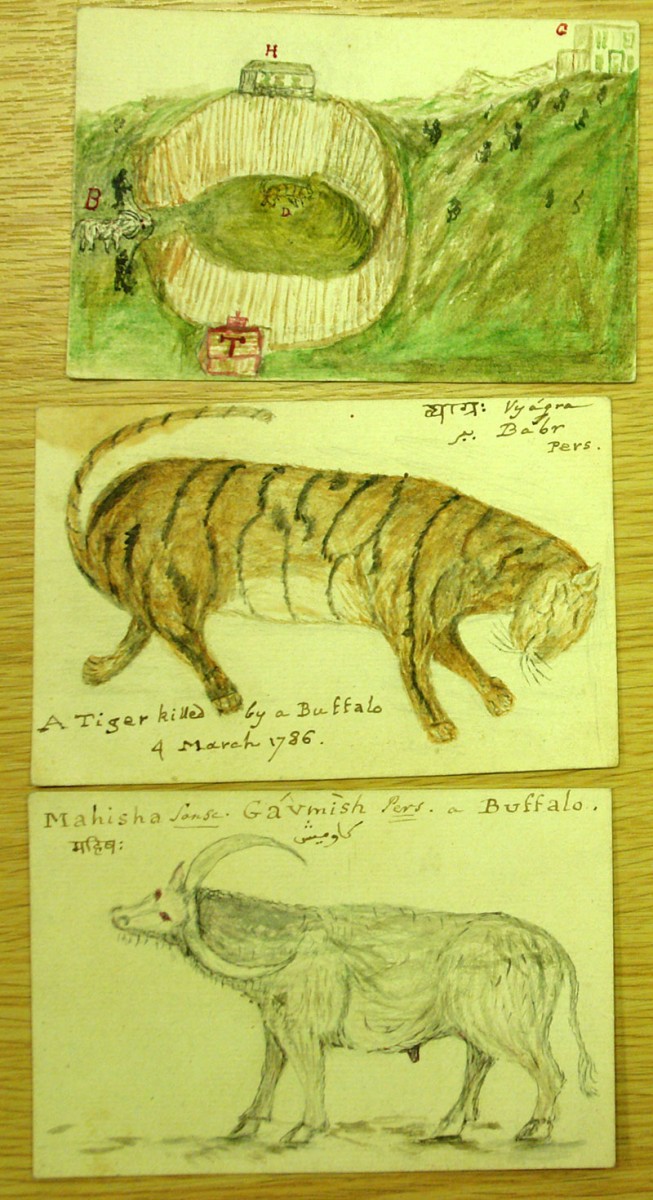 H
C
B
D
T
व्याघ्रः Vyágra
ببر Babr
Pers.
A Tiger killed by a Buffalo
4 March 1786.
Mahisha Sansc. Gávmìsh Pers. a Buffalo.
महिषः گاوميش